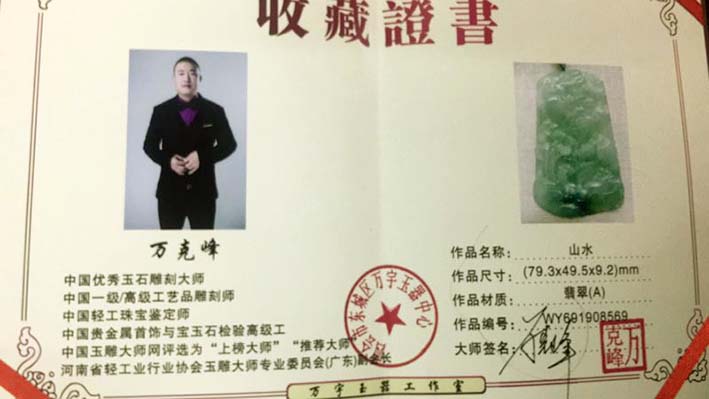 收藏證書
万克峰
中国优秀玉石雕刻大师
中国一级/高级工艺品雕刻师
中国轻工珠宝鉴定师
中国贵金属首饰与宝玉石检验高级工
中国玉雕大师网评选为“上榜大师” “推荐大师”
河南省轻工业行业协会玉雕大师专业委员会(广东)副会长
市东城区万宇玉器中心
作品名称: 山水
作品尺寸: (79.3x49.5x9.2)mm
作品材质: 翡翠(A)
作品编号: WY691908569
大师签名:
万克峰
万宇玉器工作室